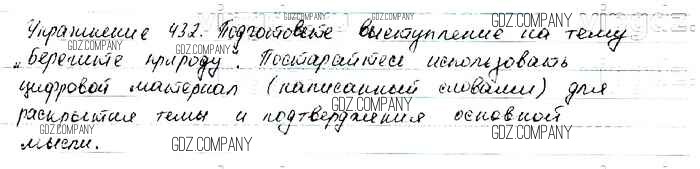 Упражнение 432. Подготовьте выступление на тему
„Берегите природу". Постарайтесь использовать
цифровой материал (написанный словами) для
раскрытия темы и подтверждения основной
мысли.
GDZ.COMPANY
GDZ.COMPANY
GDZ.COMPANY
GDZ.COMPANY
GDZ.COMPANY
GDZ.COMPANY
GDZ.COMPANY
GDZ.COMPANY
GDZ.COMPANY
GDZ.COMPANY
GDZ.COMPANY